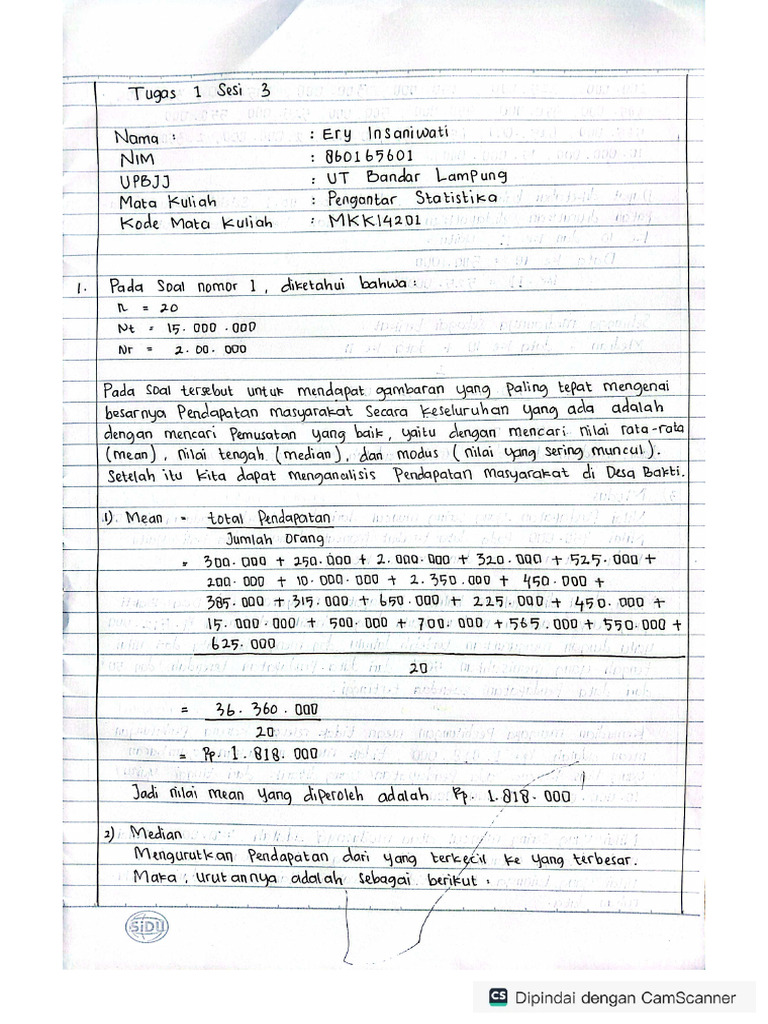 Tugas 1 Sesi 3
Nama : : Ery Insaniwati
NIM : 860165601
UPBJJ : UT Bandar Lampung
Mata Kuliah : Pengantar Statistika
Kode Mata Kuliah : MKKI4201
1. Pada Soal nomor 1, diketahui bahwa :
n = 20
Nt = 15.000.000
Nr = 2.00.000
Pada soal tersebut untuk mendapat gambaran yang paling tepat mengenai
besarnya Pendapatan masyarakat Secara Keseluruhan yang ada adalah
dengan mencari Pemusatan yang baik, yaitu dengan mencari nilai rata-rata
(mean), nilai tengah (median), dan modus (nilai yang sering muncul).
Setelah itu Kita dapat menganalisis Pendapatan Masyarakat di Desa Bakti.
1). Mean = total Pendapatan
Jumlah Orang
= 300.000 + 250.000 + 2.000.000 + 320.000 + 525.000 +
200.000 + 10.000.000 + 2.350.000 + 450.000 +
385.000 + 315.000 + 650.000 + 225.000 + 450.000 +
15.000.000 + 500.000 + 700.000 + 565.000 + 550.000 +
625.000
20
= 36.360.000
20
= Rp 1.818.000
Jadi nilai mean yang diperoleh adalah Rp. 1.818.000
2) Median
Mengurutkan Pendapatan dari yang terkecil ke yang terbesar.
Maka, urutannya adalah sebagai berikut :
SIDU
CS Dipindai dengan CamScanner